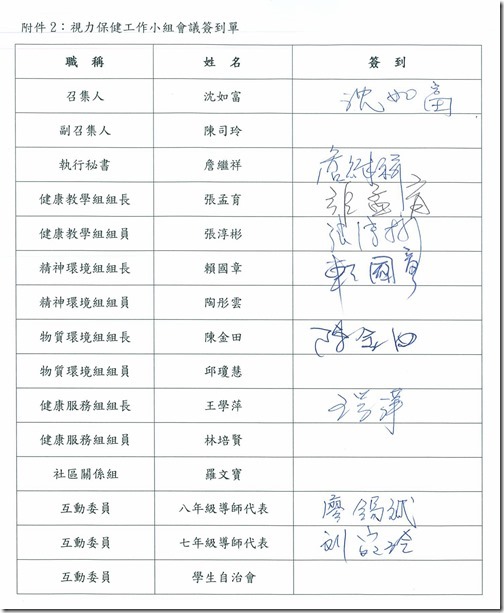 附件2：視力保健工作小組會議簽到單
職 稱 姓 名 簽 到
召集人 沈如富 沈如富
副召集人 陳司玲
執行秘書 詹繼祥 詹繼祥
健康教學組組長 張孟育 張孟育
健康教學組組員 張淳彬 張淳彬
精神環境組組長 賴國章 賴國章
精神環境組組員 陶彤雲
物質環境組組長 陳金田 陳金田
物質環境組組員 邱瓊慧
健康服務組組長 王學萍 王学萍
健康服務組組員 林培賢
社區關係組 羅文寶
互動委員 八年級導師代表 廖錫斌
互動委員 七年級導師代表
互動委員 學生自治會